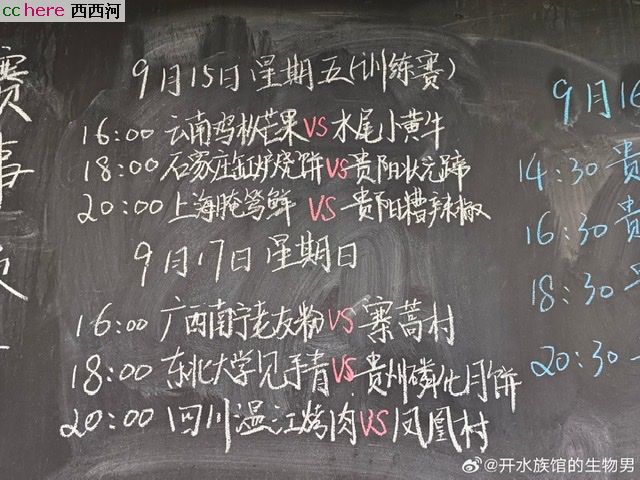 cchere 西西河
赛
事
9月15日星期五(训练赛)
16:00 云南鸡枞芒果VS水尾小黄牛
18:00 石家庄缸炉烧饼VS贵阳状元蹄
20:00 上海腌笃鲜 VS 贵阳糟辣椒
9月17日星期日
16:00 广西南宁老友粉VS寨蒿村
18:00 东北大学见手青VS贵州磷化月饼
20:00 四川温江烤肉VS凤凰村
9月16
14:30 贵
16:30 贵
18:30 平
20:30
@开水族馆的生物男